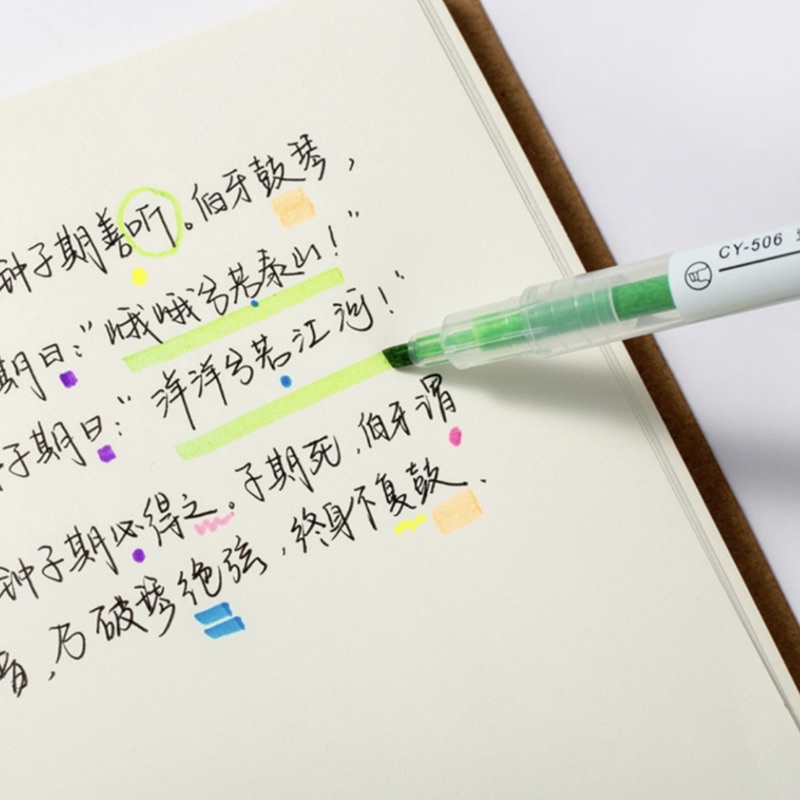 钟子期善听。伯牙鼓琴，
期曰：“峨峨兮若泰山！”
子期曰：“洋洋兮若江河！”
伯牙谓
钟子期必得之。子期死，
音，乃破琴绝弦，终身不复鼓.
CY-506